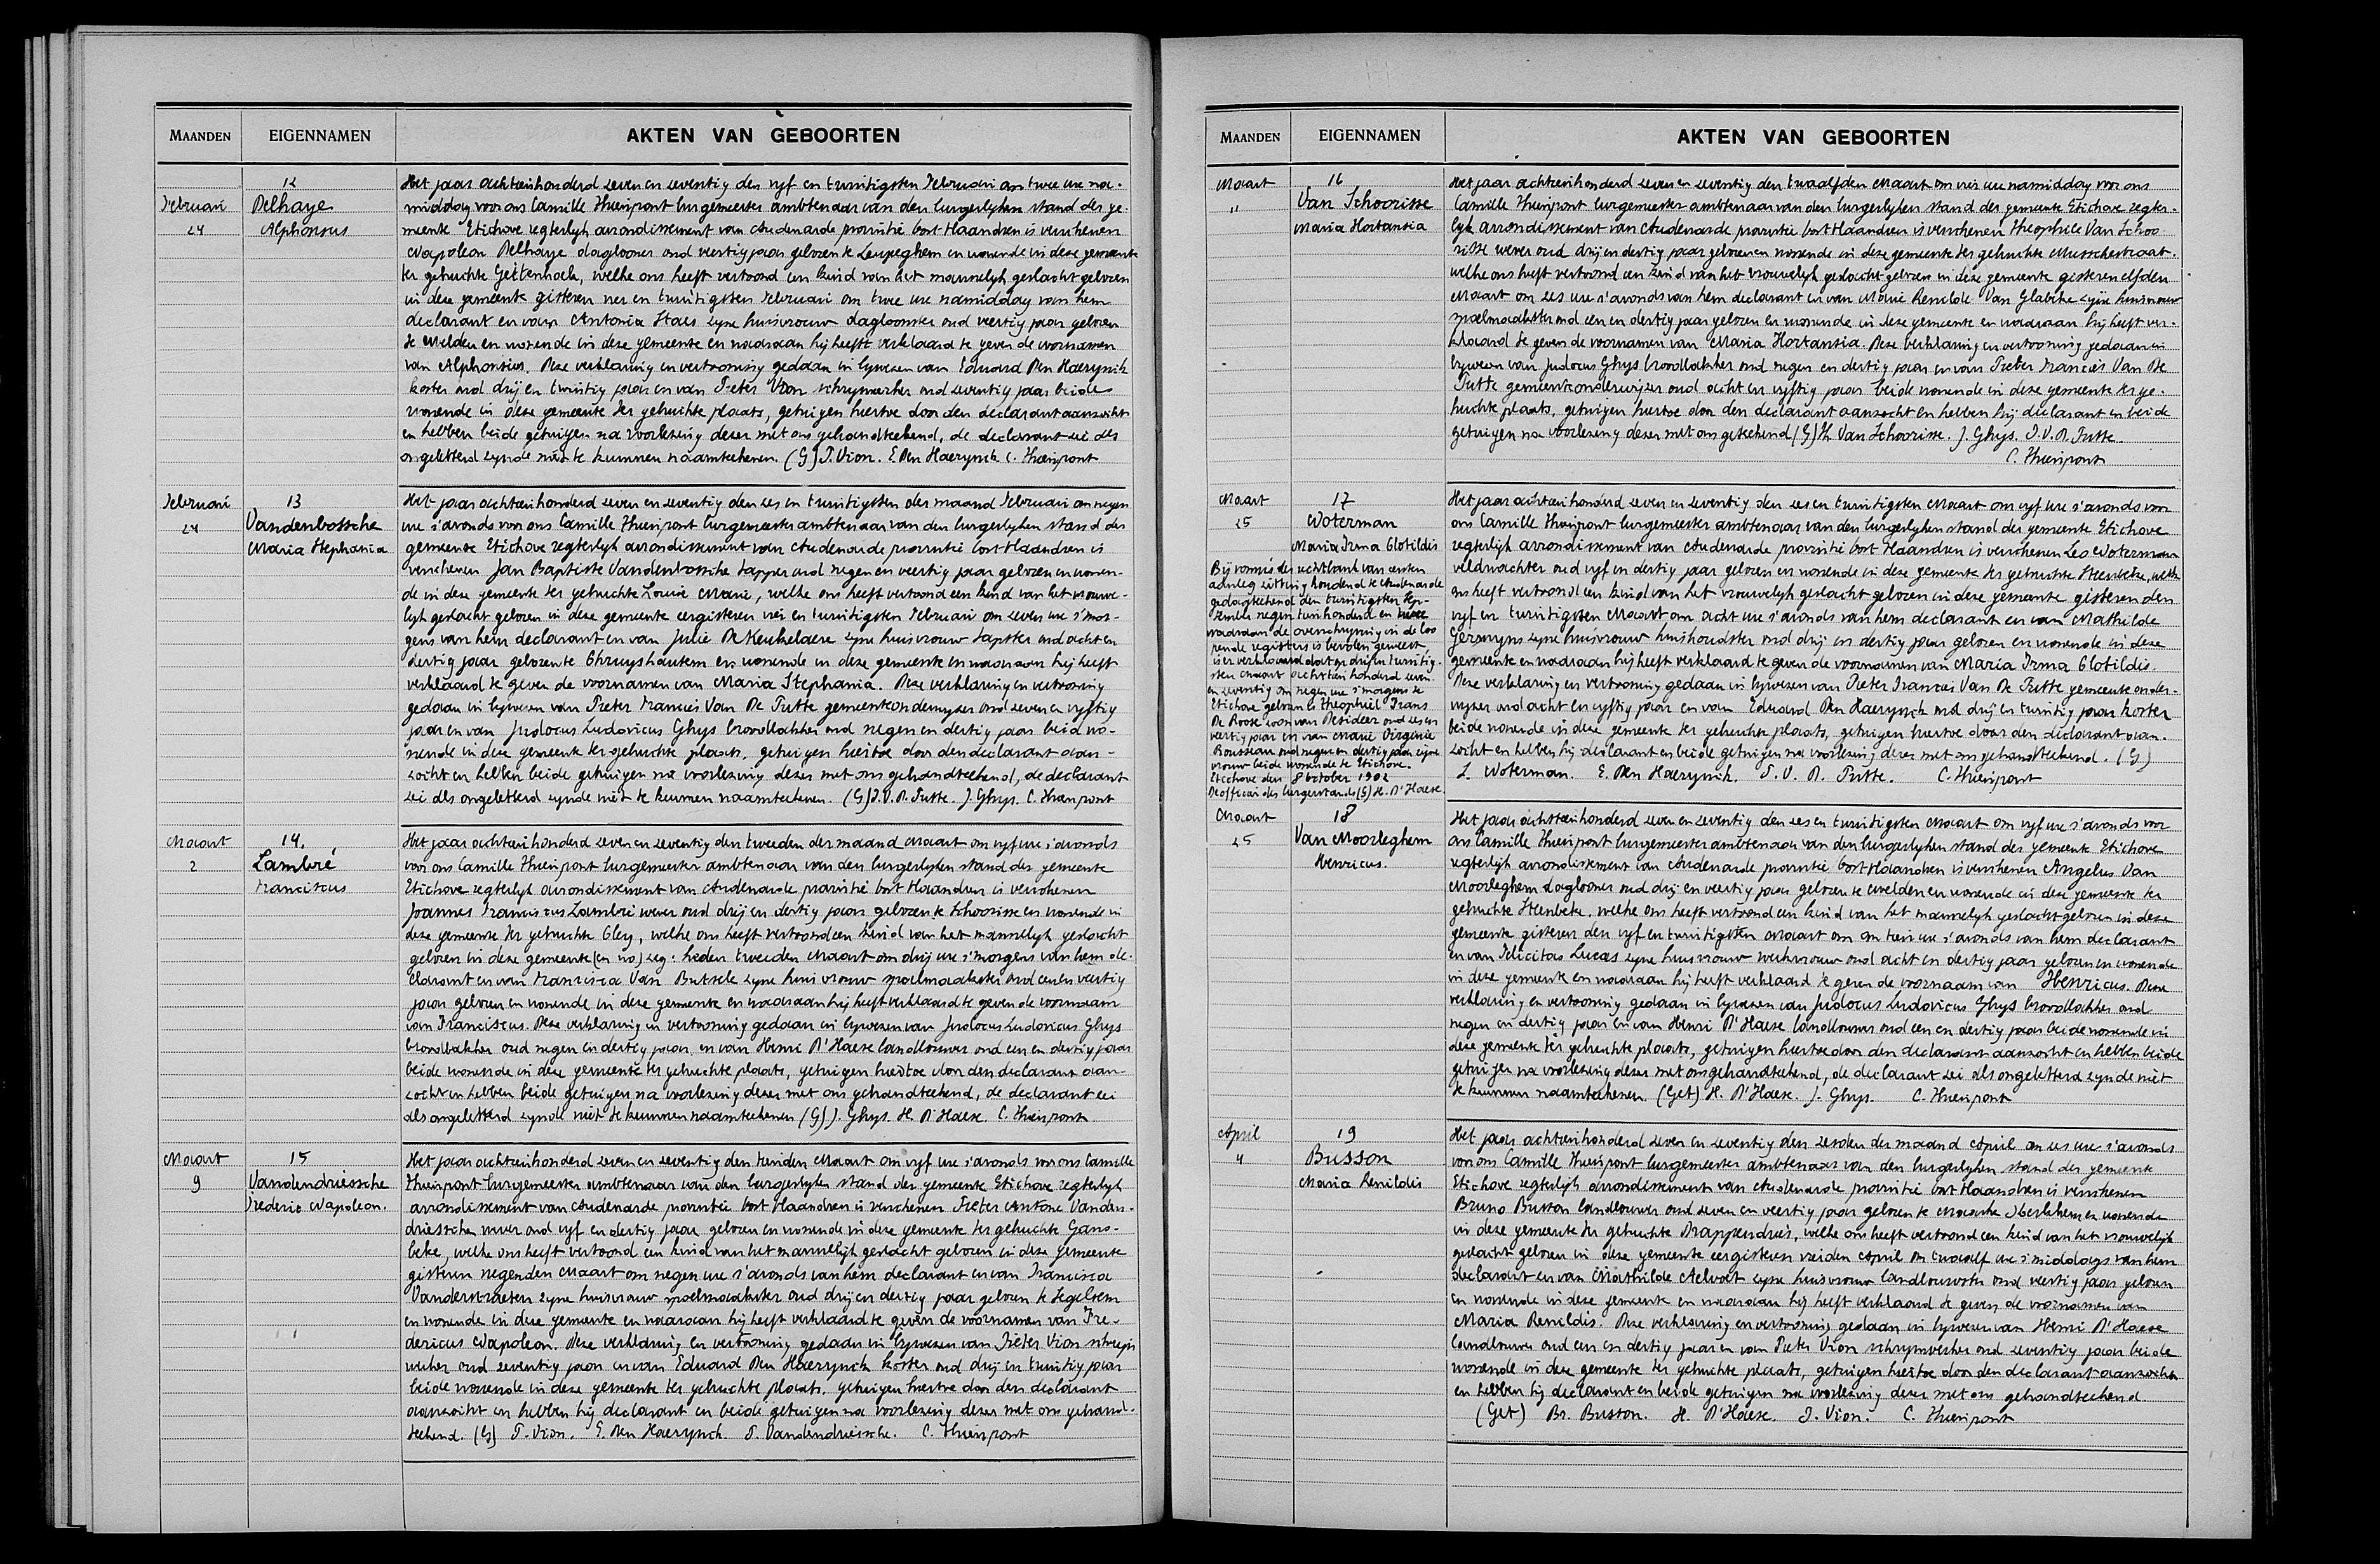 MAANDEN
EIGENNAMEN
AKTEN VAN GEBOORTEN
12
Februari
24
Delhaye
Alphonsus
Het jaar achttienhonderd zeven en zeventig den vyf en twintigsten Februari om twee ure na-
middag voor ons Camille Thienpont burgemeester ambtenaar van den burgerlyken stand der ge-
meente Etichove regterlyk arrondissement van Audenarde provintie Oost Vlaandren is verschenen
Napoleon Delhaye daglooner oud veertig jaar geboren te Leupeghem en wonende in deze gemeente
ter gehuchte Geitenhoek, welke ons heeft vertoond een kind van het mannelyk geslacht geboren
in deze gemeente gisteren vier en twintigsten Februari om twee ure namiddag van hem
declarant en van Antonia Staes zyne huisvrouw dagloonster oud veertig jaar geboren
te Melden en wonende in deze gemeente en waaraan hij heeft verklaard te geven de voornamen
van Alphonsius. Deze verklaring en vertooning gedaan in bywezen van Eduard Den Haerynck
koster oud drij en twintig jaar en van Pieter Vion schrynwerker oud zeventig jaar beide
wonende in deze gemeente ter gehuchte plaats, getuigen hiertoe door den declarant aanzocht
en hebben beide getuigen na voorlezing dezer met ons gehandteekend, de declarant zei als
ongeletterd zynde niet te kunnen naamteekenen. (G) P. Vion. E. Den Haerynck C. Thienpont
Februari
24
13
Vandenbossche
Maria Stephania
Het jaar achttienhonderd zeven en zeventig den zes en twintigsten der maand Februari om negen
ure s'avonds voor ons Camille Thienpont burgemeester ambtenaar van den burgerlyken stand der
gemeente Etichove regterlyk arrondissement van Audenarde provintie Oost Vlaandren is
verschenen Jan Baptiste Vandenbossche tapper oud negen en veertig jaar geboren en wonen-
de in deze gemeente ter gehuchte Louise Marie, welke ons heeft vertoond een kind van het vrouwe-
lyk geslacht geboren in deze gemeente eergisteren vier en twintigsten Februari om zeven ure s'mor-
gens van hem declarant en van Julie De Keukelaere zyne huisvrouw tapster oud acht en
dertig jaar geboren te Chruyshautem en wonende in deze gemeente en waaraan hij heeft
verklaard te geven de voornamen van Maria Stephania. Deze verklaring en vertooning
gedaan in bywezen van Pieter Francies Van De Putte gemeenteonderwyzer oud zeven en vyftig
jaar en van Judocus Ludovicus Ghys broodbakker oud negen en dertig jaar beide wo-
nende in deze gemeente ter gehuchte plaats, getuigen hiertoe door den declarant aan-
zocht en hebben beide getuigen na voorlezing dezer met ons gehandteekend, de declarant
zei als ongeletterd zynde niet te kunnen naamteekenen. (G) P.V.D. Putte. J. Ghys. C. Thienpont
Maart
2
14.
Lambré
Franciscus
Het jaar achttienhonderd zeven en zeventig den tweeden der maand Maart om vyf ure s'avonds
voor ons Camille Thienpont burgemeester ambtenaar van den burgerlyken stand der gemeente
Etichove regterlyk arrondissement van Audenarde provintie Oost Vlaandren is verschenen
Joannes Franciscus Lambré wever oud drij en dertig jaar geboren te Schoorisse en wonende in
deze gemeente ter gehuchte Cley, welke ons heeft vertoond een kind van het mannelyk geslacht
geboren in deze gemeente (en wo) zeg: heden tweeden Maart om drij ure s'morgens van hem de-
clarant en van Francisca Van Butsele zyne huisvrouw spoelmaakster oud een en veertig
jaar geboren en wonende in deze gemeente en waaraan hij heeft verklaard te geven de voornaam
van Franciscus. Deze verklaring en vertooning gedaan in bywezen van Judocus Ludovicus Ghys
broodbakker oud negen en dertig jaar en van Henri D'Haese landbouwer oud een en dertig jaar
beide wonende in deze gemeente ter gehuchte plaats, getuigen hiertoe door den declarant aan-
zocht en hebben beide getuigen na voorlezing dezer met ons gehandteekend, de declarant zei
als ongeletterd zynde niet te kunnen naamteekenen (G) J. Ghys. H. D'Haese. C. Thienpont
Maart
9
15
Vandendriessche
Frederic Napoleon.
Het jaar achttienhonderd zeven en zeventig den tienden Maart om vyf ure s'avonds voor ons Camille
Thienpont burgemeester ambtenaar van den burgerlyken stand der gemeente Etichove regterlyk
arrondissement van Audenarde provintie Oost Vlaandren is verschenen Pieter Antone Vanden-
driessche wever oud vyf en dertig jaar geboren en wonende in deze gemeente ter gehuchte Gans-
beke, welke ons heeft vertoond een kind van het mannelyk geslacht geboren in deze gemeente
gisteren negenden Maart om negen ure s'avonds van hem declarant en van Francisca
Vanderstraeten zyne huisvrouw spoelmaakster oud drij en dertig jaar geboren te Segelsem
en wonende in deze gemeente en waaraan hij heeft verklaard te geven de voornamen van Fre-
dericus Napoleon. Deze verklaring en vertooning gedaan in bywezen van Pieter Vion schryn
werker oud zeventig jaar en van Eduard Den Haerynck koster oud drij en twintig jaar
beide wonende in deze gemeente ter gehuchte plaats, getuigen hiertoe door den declarant
aanzocht en hebben hij declarant en beide getuigen na voorlezing dezer met ons gehand-
teekend. (G) P. Vion. E. Den Haerynck. P. Vandendriessche. C. Thienpont
MAANDEN
EIGENNAMEN
AKTEN VAN GEBOORTEN
Maart
11
16
Van Schoorisse
Maria Hortansia
Het jaar achttienhonderd zeven en zeventig den twaalfden Maart om vier ure namiddag voor ons
Camille Thienpont burgemeester ambtenaar van den burgerlyken stand der gemeente Etichove regter-
lyk arrondissement van Audenarde provintie Oost Vlaandren is verschenen Theophile Van Schoo
risse wever oud drij en dertig jaar geboren en wonende in deze gemeente ter gehuchte Musschestraat.
welke ons heeft vertoond een kind van het vrouwelyk geslacht geboren in deze gemeente gisteren elfden
Maart om zes ure s'avonds van hem declarant en van Marie Renilde Van Glabeke zyne huisvrouw
spoelmaakster oud een en dertig jaar geboren en wonende in deze gemeente en waaraan hij heeft ver-
klaard te geven de voornamen van Maria Hortansia. Deze verklaring en vertooning gedaan in
bywezen van Judocus Ghys broodbakker oud negen en dertig jaar en van Pieter Francies Van De
Putte gemeenteonderwijzer oud acht en vyftig jaar beide wonende in deze gemeente ter ge-
huchte plaats, getuigen hiertoe door den declarant aanzocht en hebben hij declarant en beide
getuigen na voorlezing dezer met ons geteekend (G) Th. Van Schoorisse. J. Ghys. P.V.D. Putte.
C. Thienpont
Maart
25
17
Woterman
Maria Irma Clotildis
Bij vonnis der rechtbank van eersten
aanleg zitting houdend te Audenarde
gedagteekend den twintigsten Sep-
tember negentienhonderd en twee
waarvan de overschryving in de loo
pende registers is bevolen geweest,
is er verklaard dat op drij en twintig-
sten Maart achttien honderd zeven
en zeventig om negen ure s'morgens te
Etichove geboren is Theophiel Frans
De Roose zoon van Desideer oud zes en
veertig jaar en van Marie Virginie
Rousseau oud negen en dertig jaar zijne
vrouw beide wonende te Etichove.
Etichove den 8 october 1902
De officier des burgerstands (G) H. D'Haese.
Het jaar achttienhonderd zeven en zeventig den zes en twintigsten Maart om vyf ure s'avonds voor
ons Camille Thienpont burgemeester ambtenaar van den burgerlyken stand der gemeente Etichove
regterlyk arrondissement van Audenarde provintie Oost Vlaandren is verschenen Leo Woterman
veldwachter oud vyf en dertig jaar geboren en wonende in deze gemeente ter gehuchte Steenbeke, welke
ons heeft vertoond een kind van het vrouwelyk geslacht geboren in deze gemeente gisteren den
vyf en twintigsten Maart om acht ure s'avonds van hem declarant en van Mathilde
Germyns zyne huisvrouw huishoudster oud drij en dertig jaar geboren en wonende in deze
gemeente en waaraan hij heeft verklaard te geven de voornamen van Maria Irma Clotildis.
Deze verklaring en vertooning gedaan in bywezen van Pieter Francies Van De Putte gemeente onder-
wyzer oud acht en vyftig jaar en van Eduard Den Haerynck oud drij en twintig jaar koster
beide wonende in deze gemeente ter gehuchte plaats, getuigen hiertoe door den declarant aan-
zocht en hebben hij declarant en beide getuigen na voorlezing dezer met ons gehandteekend. (G)
L. Woterman. E. Den Haerynck. P. V. D. Putte. C. Thienpont
Maart
25
18
Van Moorleghem
Henricus.
Het jaar achttienhonderd zeven en zeventig den zes en twintigsten Maart om vyf ure s'avonds voor
ons Camille Thienpont burgemeester ambtenaar van den burgerlyken stand der gemeente Etichove
regterlyk arrondissement van Audenarde provintie Oost Vlaandren is verschenen Angelus Van
Moorleghem daglooner oud drij en veertig jaar geboren te Melden en wonende in deze gemeente ter
gehuchte Steenbeke, welke ons heeft vertoond een kind van het mannelyk geslacht geboren in deze
gemeente gisteren den vyf en twintigsten Maart om tien ure s'avonds van hem declarant
en van Felicitas Lucas zyne huisvrouw werkvrouw oud acht en dertig jaar geboren en wonende
in deze gemeente en waaraan hij heeft verklaard te geven de voornaam van Henricus. Deze
verklaring en vertooning gedaan in bywezen van Judocus Ludovicus Ghys broodbakker oud
negen en dertig jaar en van Henri D'Haese landbouwer oud een en dertig jaar beide wonende in
deze gemeente ter gehuchte plaats, getuigen hiertoe door den declarant aanzocht en hebben beide
getuigen na voorlezing dezer met ons gehandteekend, de declarant zei als ongeletterd zynde niet
te kunnen naamteekenen. (Get) H. D'Haese. J. Ghys. C. Thienpont
April
4
19
Busson
Maria Renildis
Het jaar achttienhonderd zeven en zeventig den zesden der maand April om zes ure s'avonds
voor ons Camille Thienpont burgemeester ambtenaar van den burgerlyken stand der gemeente
Etichove regterlyk arrondissement van Audenarde provintie Oost Vlaandren is verschenen
Bruno Busson landbouwer oud zeven en veertig jaar geboren te Maercke Kerkhem en wonende
in deze gemeente ter gehuchte Drappendries, welke ons heeft vertoond een kind van het vrouwelyk
geslacht geboren in deze gemeente eergisteren vierden April om twaalf ure s'middags van hem
declarant en van Mathilde Aelvoet zyne huisvrouw landbouwster oud veertig jaar geboren
en wonende in deze gemeente en waaraan hij heeft verklaard te geven de voornamen van
Maria Renildis. Deze verklaring en vertooning gedaan in bywezen van Henri D'Haese
landbouwer oud een en dertig jaar en van Pieter Vion schrynwerker oud zeventig jaar beide
wonende in deze gemeente ter gehuchte plaats, getuigen hiertoe door den declarant aanzocht
en hebben hij declarant en beide getuigen na voorlezing dezer met ons gehandteekend
(Get) Br. Busson. H. D'Haese. P. Vion. C. Thienpont